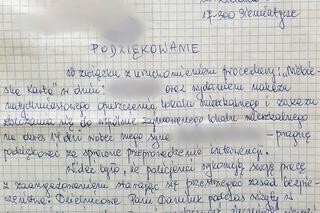 17-300 Siemiatycze
PODZIĘKOWANIE
W związku z uruchomieniem procedury „Niebie-
skie Karta" w dniu: oraz wydaniem nakazu
natychmiastowego opuszczenia lokalu mieszkalnego i zakazu
zbliżania się do wspólnie zajmowanego lokalu mieszkalnego
na okres 14 dni wobec mego syna – pragnę
podziękować za sprawne przeprowadzenie interwencji.
Widać było, że policjanci wykonują swoją pracę
z zaangażowaniem starając się przestrzegać zasad bezpie-
czeństwa. Dzielnicowe Pani podczas wizyty w